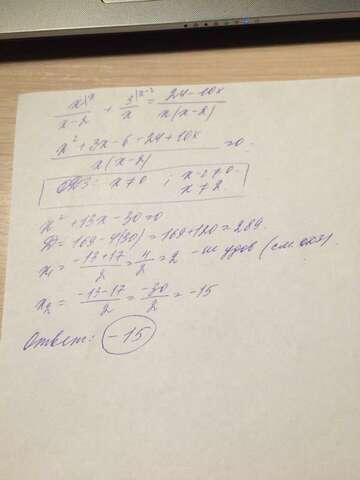 x|x / x-2 + 3|x-2 / x = 24-10x / x(x-2)
x² + 3x - 6 - 24 + 10x / x(x-2) = 0.
ОДЗ: x≠0 ; x-2≠0
x≠2.
x² + 13x - 30 = 0
D = 169 - 4(30) = 169 + 120 = 289.
x₁ = -13+17 / 2 = 4 / 2 = 2 - не удов (см одз).
x₂ = -13-17 / 2 = -30 / 2 = -15
Ответ: -15